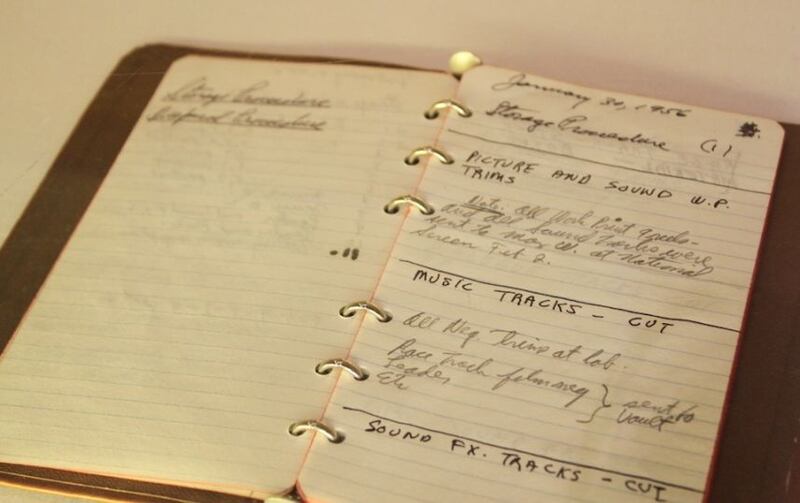 Storage Procedure
Disposal Procedure
January 30, 1956
Storage Procedure (1)
PICTURE AND SOUND W.P.
TRIMS
Note: All Work Print Trims
and all Sound Tracks were
sent to Max W. at National
Screen Feb 2.
MUSIC TRACKS - CUT
All Neg. Trims at lab.
Race Track film neg
Leader
Etc
} sent to
Vault
SOUND FX. TRACKS - CUT